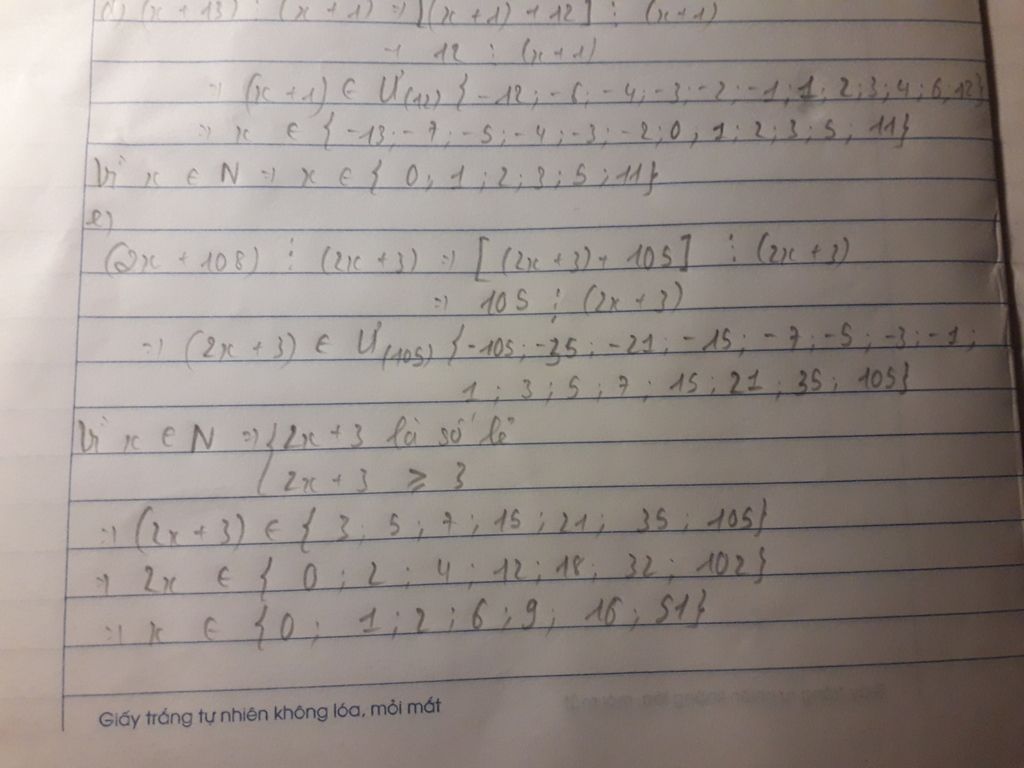 d) (x + 13) ⋮ (x + 1) => [(x + 1) + 12] ⋮ (x+1)
=> 12 ⋮ (x+1)
=> (x + 1) ∈ Ư(12) {-12; -6; -4; -3; -2; -1; 1; 2; 3; 4; 6; 12}
=> x ∈ {-13; -7; -5; -4; -3; -2; 0; 1; 2; 3; 5; 11}
Vì x ∈ N => x ∈ { 0; 1; 2; 3; 5; 11}
e)
(2x + 108) ⋮ (2x + 3) => [(2x + 3) + 105] ⋮ (2x + 3)
=> 105 ⋮ (2x + 3)
=> (2x + 3) ∈ Ư(105) {-105; -35; -21; -15; -7; -5; -3; -1;
1; 3; 5; 7; 15; 21; 35; 105}
Vì x ∈ N => { 2x + 3 là số lẻ
2x + 3 ⩾ 3
=> (2x + 3) ∈ { 3; 5; 7; 15; 21; 35; 105}
=> 2x ∈ { 0; 2; 4; 12; 18; 32; 102}
=> x ∈ {0; 1; 2; 6; 9; 16; 51}
Giấy trắng tự nhiên không lóa, mỏi mắt